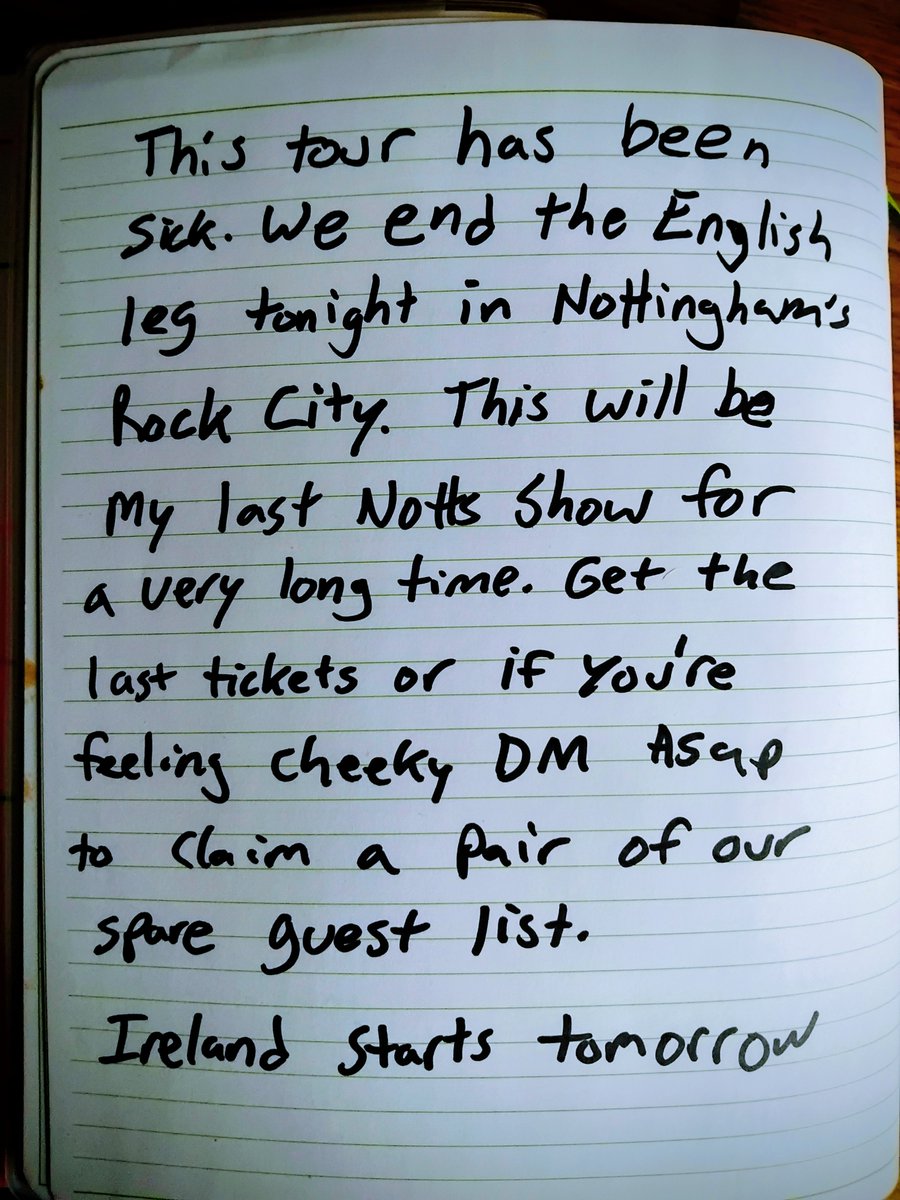 This tour has been
sick. We end the English
leg tonight in Nottingham's
Rock City. This will be
My last Notts Show for
a very long time. Get the
last tickets or if You're
feeling cheeky DM Asap
to claim a pair of our
spare guest list.
Ireland starts tomorrow